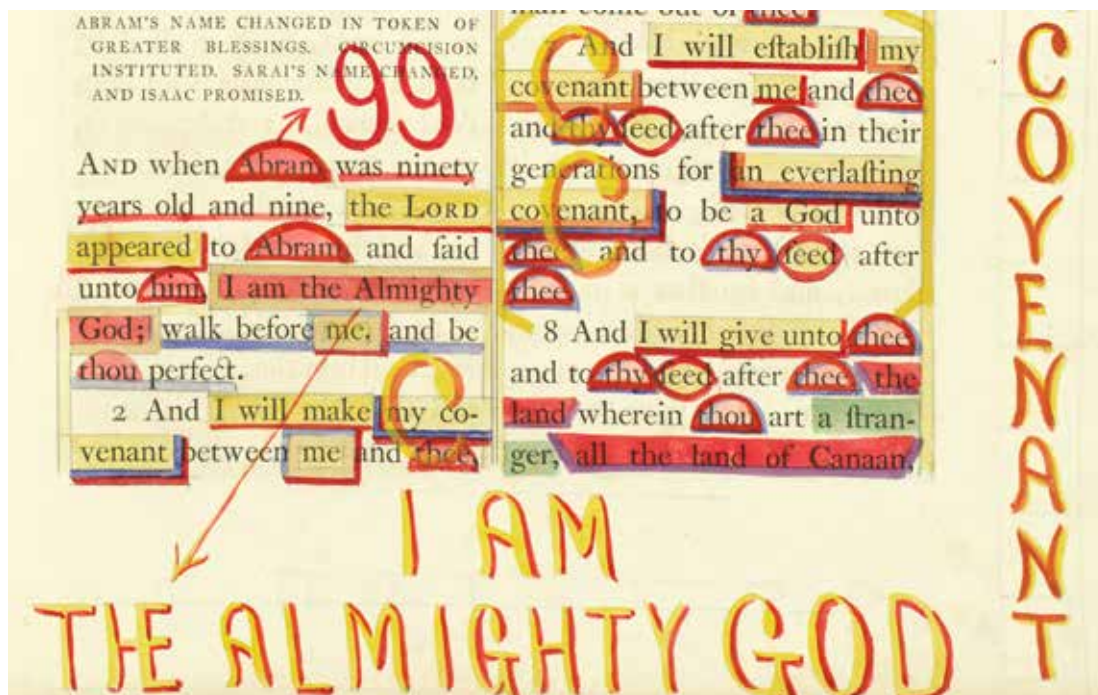 ABRAM'S NAME CHANGED IN TOKEN OF
GREATER BLESSINGS. CIRCUMCISION
INSTITUTED. SARAI'S NAME CHANGED,
AND ISAAC PROMISED.
99
AND when Abram was ninety
years old and nine, the LORD
appeared to Abram and ſaid
unto him, I am the Almighty
God; walk before me, and be
thou perfect.
2 And I will make my co-
venant between me and thee,
man come out of thee.
7 And I will eſtabliſh my
covenant between me and thee
and thy ſeed after thee in their
generations for an everlaſting
covenant, to be a God unto
thee and to thy ſeed after
thee
8 And I will give unto thee
and to thy ſeed after thee the
land wherein thou art a ſtran-
ger, all the land of Canaan,
C
C
C
COVENANT
I AM
THE ALMIGHTY GOD